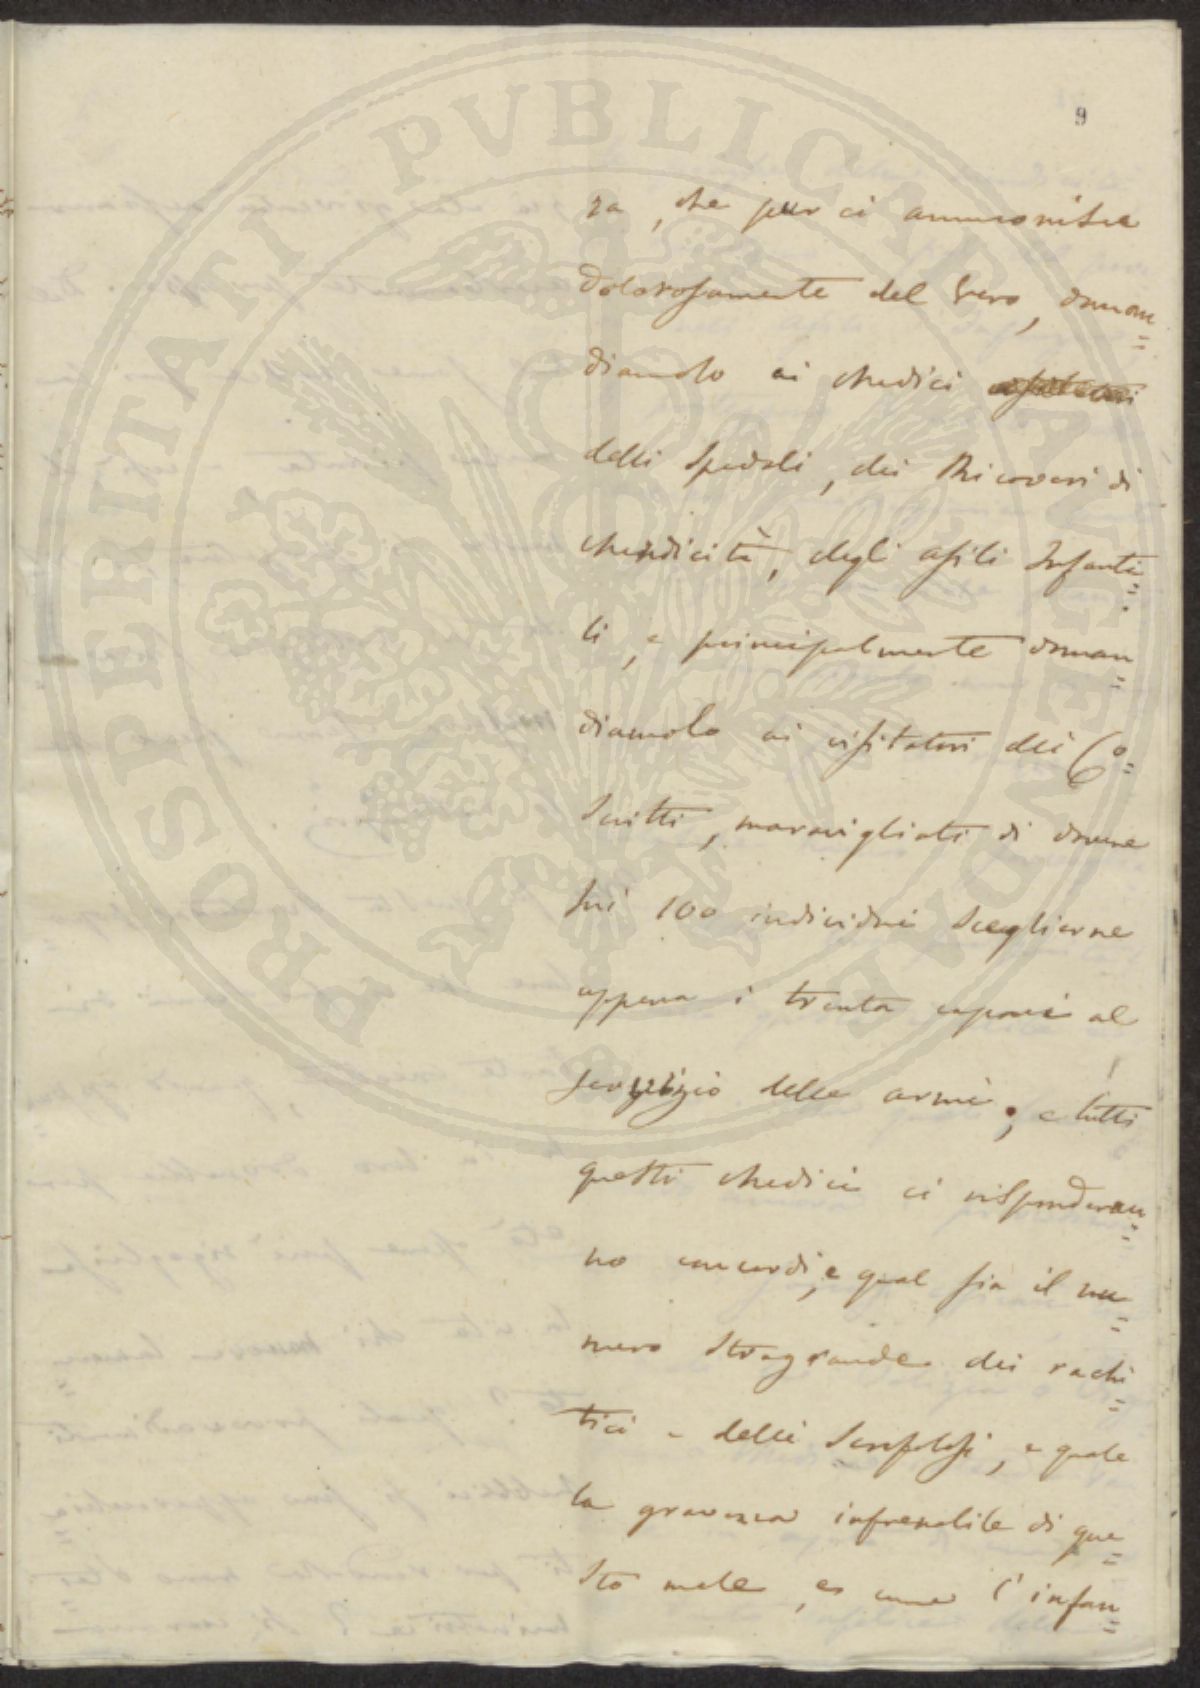 9
za, che pur ci ammonisce
dolorosamente del vero, doman=
diamolo ai Medici
delli Spedali, dei Ricoveri di
Mendicità, degli asili Infanti=
li, e principalmente doman=
diamolo ai visitatori dei Co=
scritti, maravigliati di dovere
sui 100 individui sceglierne
appena i trenta capaci al
servizio delle armi; e tutti
questi Medici ci risponderan=
no concordi, e qual sia il nu=
mero stragrande dei rachi=
tici e delli scrofolosi, e quale
la gravezza infrenabile di que=
sto male, e come l'infan=
PROSPERITATI PVBLICAE AVGENDAE